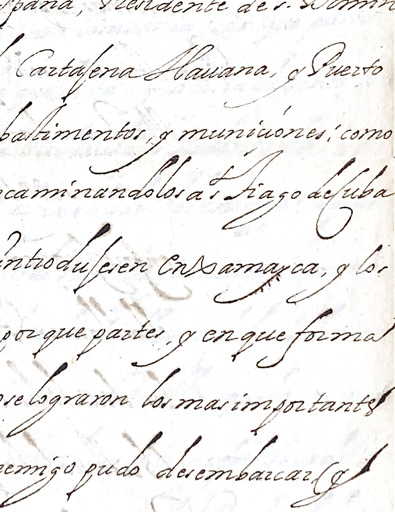 spaña, Presidente de s. Domin
Cartagena Hauana, y Puerto
bastimentos, y muniçiónes; como
ncaminandolos a st Tiago de Cuba
introdusesen en Xamayca, y los
por que partes, y en que forma
ose lograron los mas importantes
nemigo pudo desembarcar, y